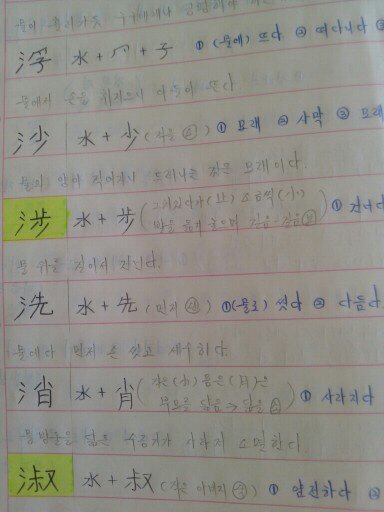 浮 水 + 爫 + 子 ①(물에) 뜨다 ②떠다니다 ③
물에서 손을 아들이 뜨다
沙 水 + 少(적을 소) ① 모래 ② 사막 ③ 모래
물의 양이 적어지니 드러나는 것은 모래이다.
涉 水 + 步( (止) 조금씩(小)
발을 옮겨 놓으며 걸음-걸음 보) ① 건너다
물 위를 걸어서 건넌다.
洗 水 + 先(먼저 선) ①(물로) 씻다 ② 다듬다
물에다 먼저 손 씻고 세수하다.
消 水 + 肖(작은(小) 몸은(月)은
부모를 닮음 → 닮을 초) ① 사라지다
물방울을 닮은 수증기가 사라져 소멸한다.
淑 水 + 叔(작은 아버지 숙) ① 얌전하다 ②